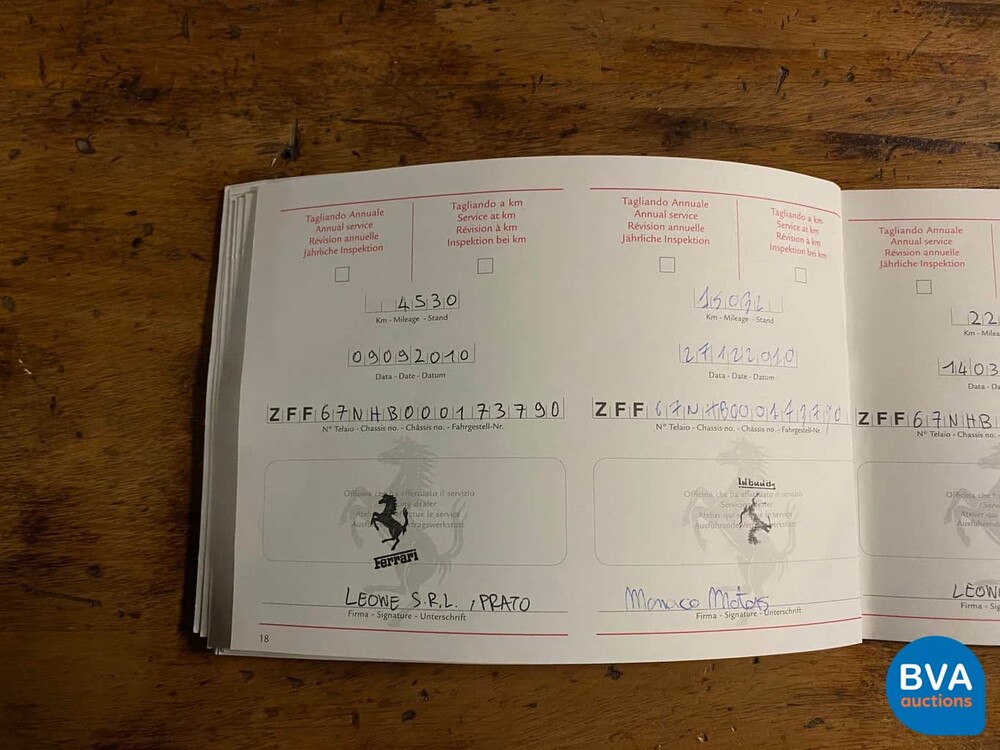 Tagliando Annuale
Annual service
Révision annuelle
Jährliche Inspektion
Tagliando a km
Service at km
Révision à km
Inspektion bei km
4530
Km - Mileage - Stand
09092010
Data - Date - Datum
ZFF67NHB000173790
N° Telaio - Chassis no. - Châssis no. - Fahrgestell-Nr.
Officina che ha effettuato il servizio
Ferrari
LEONE S.R.L., PRATO
Firma - Signature - Unterschrift
18
Tagliando Annuale
Annual service
Révision annuelle
Jährliche Inspektion
Tagliando a km
Service at km
Révision à km
Inspektion bei km
Km - Mileage - Stand
27122010
Data - Date - Datum
ZFF67NHB000173790
N° Telaio - Chassis no. - Châssis no. - Fahrgestell-Nr.
Officina che ha effettuato il servizio
Monaco Motors
Firma - Signature - Unterschrift
Tagliando Annuale
Annual service
Révision annuelle
Jährliche Inspektion
22
Km - Milea
1403
Data - Da
ZFF67NHB
N° Telaio - Chassis no. -
Officina che ha
LEON
Firma - Si
BVA
auctions